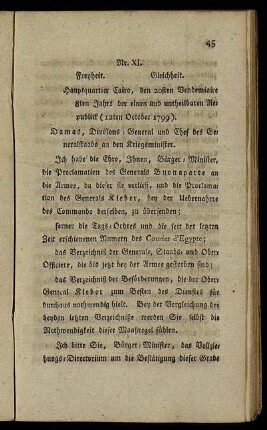 45
Nr. XI.
Freyheit. Gleichheit.
Hauptquartier Cairo, den 20sten Vendemiaire
8ten Jahrs der einen und untheilbaren Re-
publick (12ten October 1799).
Damas, Divisions-General und Chef des Ge-
neralstaabs an den Kriegsminister.
Ich habe die Ehre, Ihnen, Bürger-Minister,
die Proclamation des Generals Buonaparte an
die Armee, da er dieselbe verließ, und die Proclama-
tion des Generals Kleber, bey der Uebernahme
des Commando derselben, zu übersenden;
ferner die Tags-Ordres und die seit der letzten
Zeit erschienenen Numern des Courrier d'Egypte;
das Verzeichniß der Generale, Staabs- und Ober-
Officiere, die bis jetzt bey der Armee gestorben sind;
das Verzeichniß der Beförderungen, die der Ober-
General Kleber zum Besten des Dienstes für
durchaus nothwendig hielt. Bey der Vergleichung der
beyden letzten Verzeichnisse werden Sie selbst die
Nothwendigkeit dieser Maasregel fühlen.
Ich bitte Sie, Bürger-Minister, das Vollzie-
hungs-Directorium um die Bestätigung dieser Grade